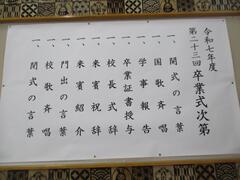 令和七年度
第二十三回 卒業式次第
一、開式の言葉
一、国歌斉唱
一、学事報告
一、卒業証書授与
一、校長式辞
一、来賓祝辞
一、来賓紹介
一、門出の言葉
一、校歌斉唱
一、閉式の言葉